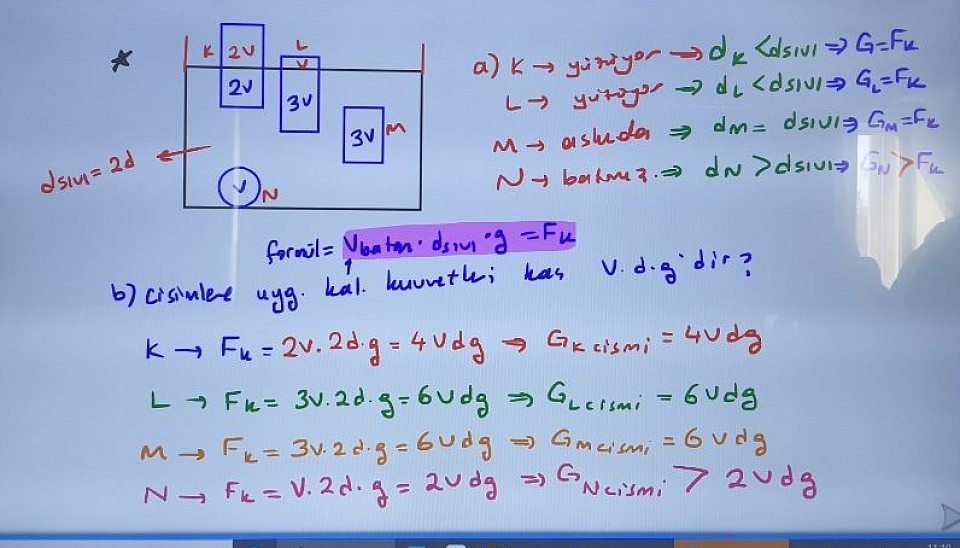 K 2V L
V
2V 3V
3V M
dsıvı = 2d
V N
a) K → yüzüyor → dK < dsıvı ⇒ G = FK
L → yüzüyor ⇒ dL < dsıvı ⇒ GL = FK
M → askıda ⇒ dm = dsıvı ⇒ GM = FK
N → batmış. ⇒ dN > dsıvı ⇒ GN > FK
formül = Vbatan · dsıvı · g = FK
b) cisimlere uyg. kal. kuvvetleri kaç V.d.g'dir?
K → Fk = 2V. 2d.g = 4Vdg ⇒ GK cismi = 4Vdg
L → Fk = 3V. 2d.g = 6Vdg ⇒ GL cismi = 6Vdg
M → Fk = 3V. 2d.g = 6Vdg ⇒ Gm cismi = 6Vdg
N → Fk = V. 2d.g = 2Vdg ⇒ GN cismi > 2Vdg